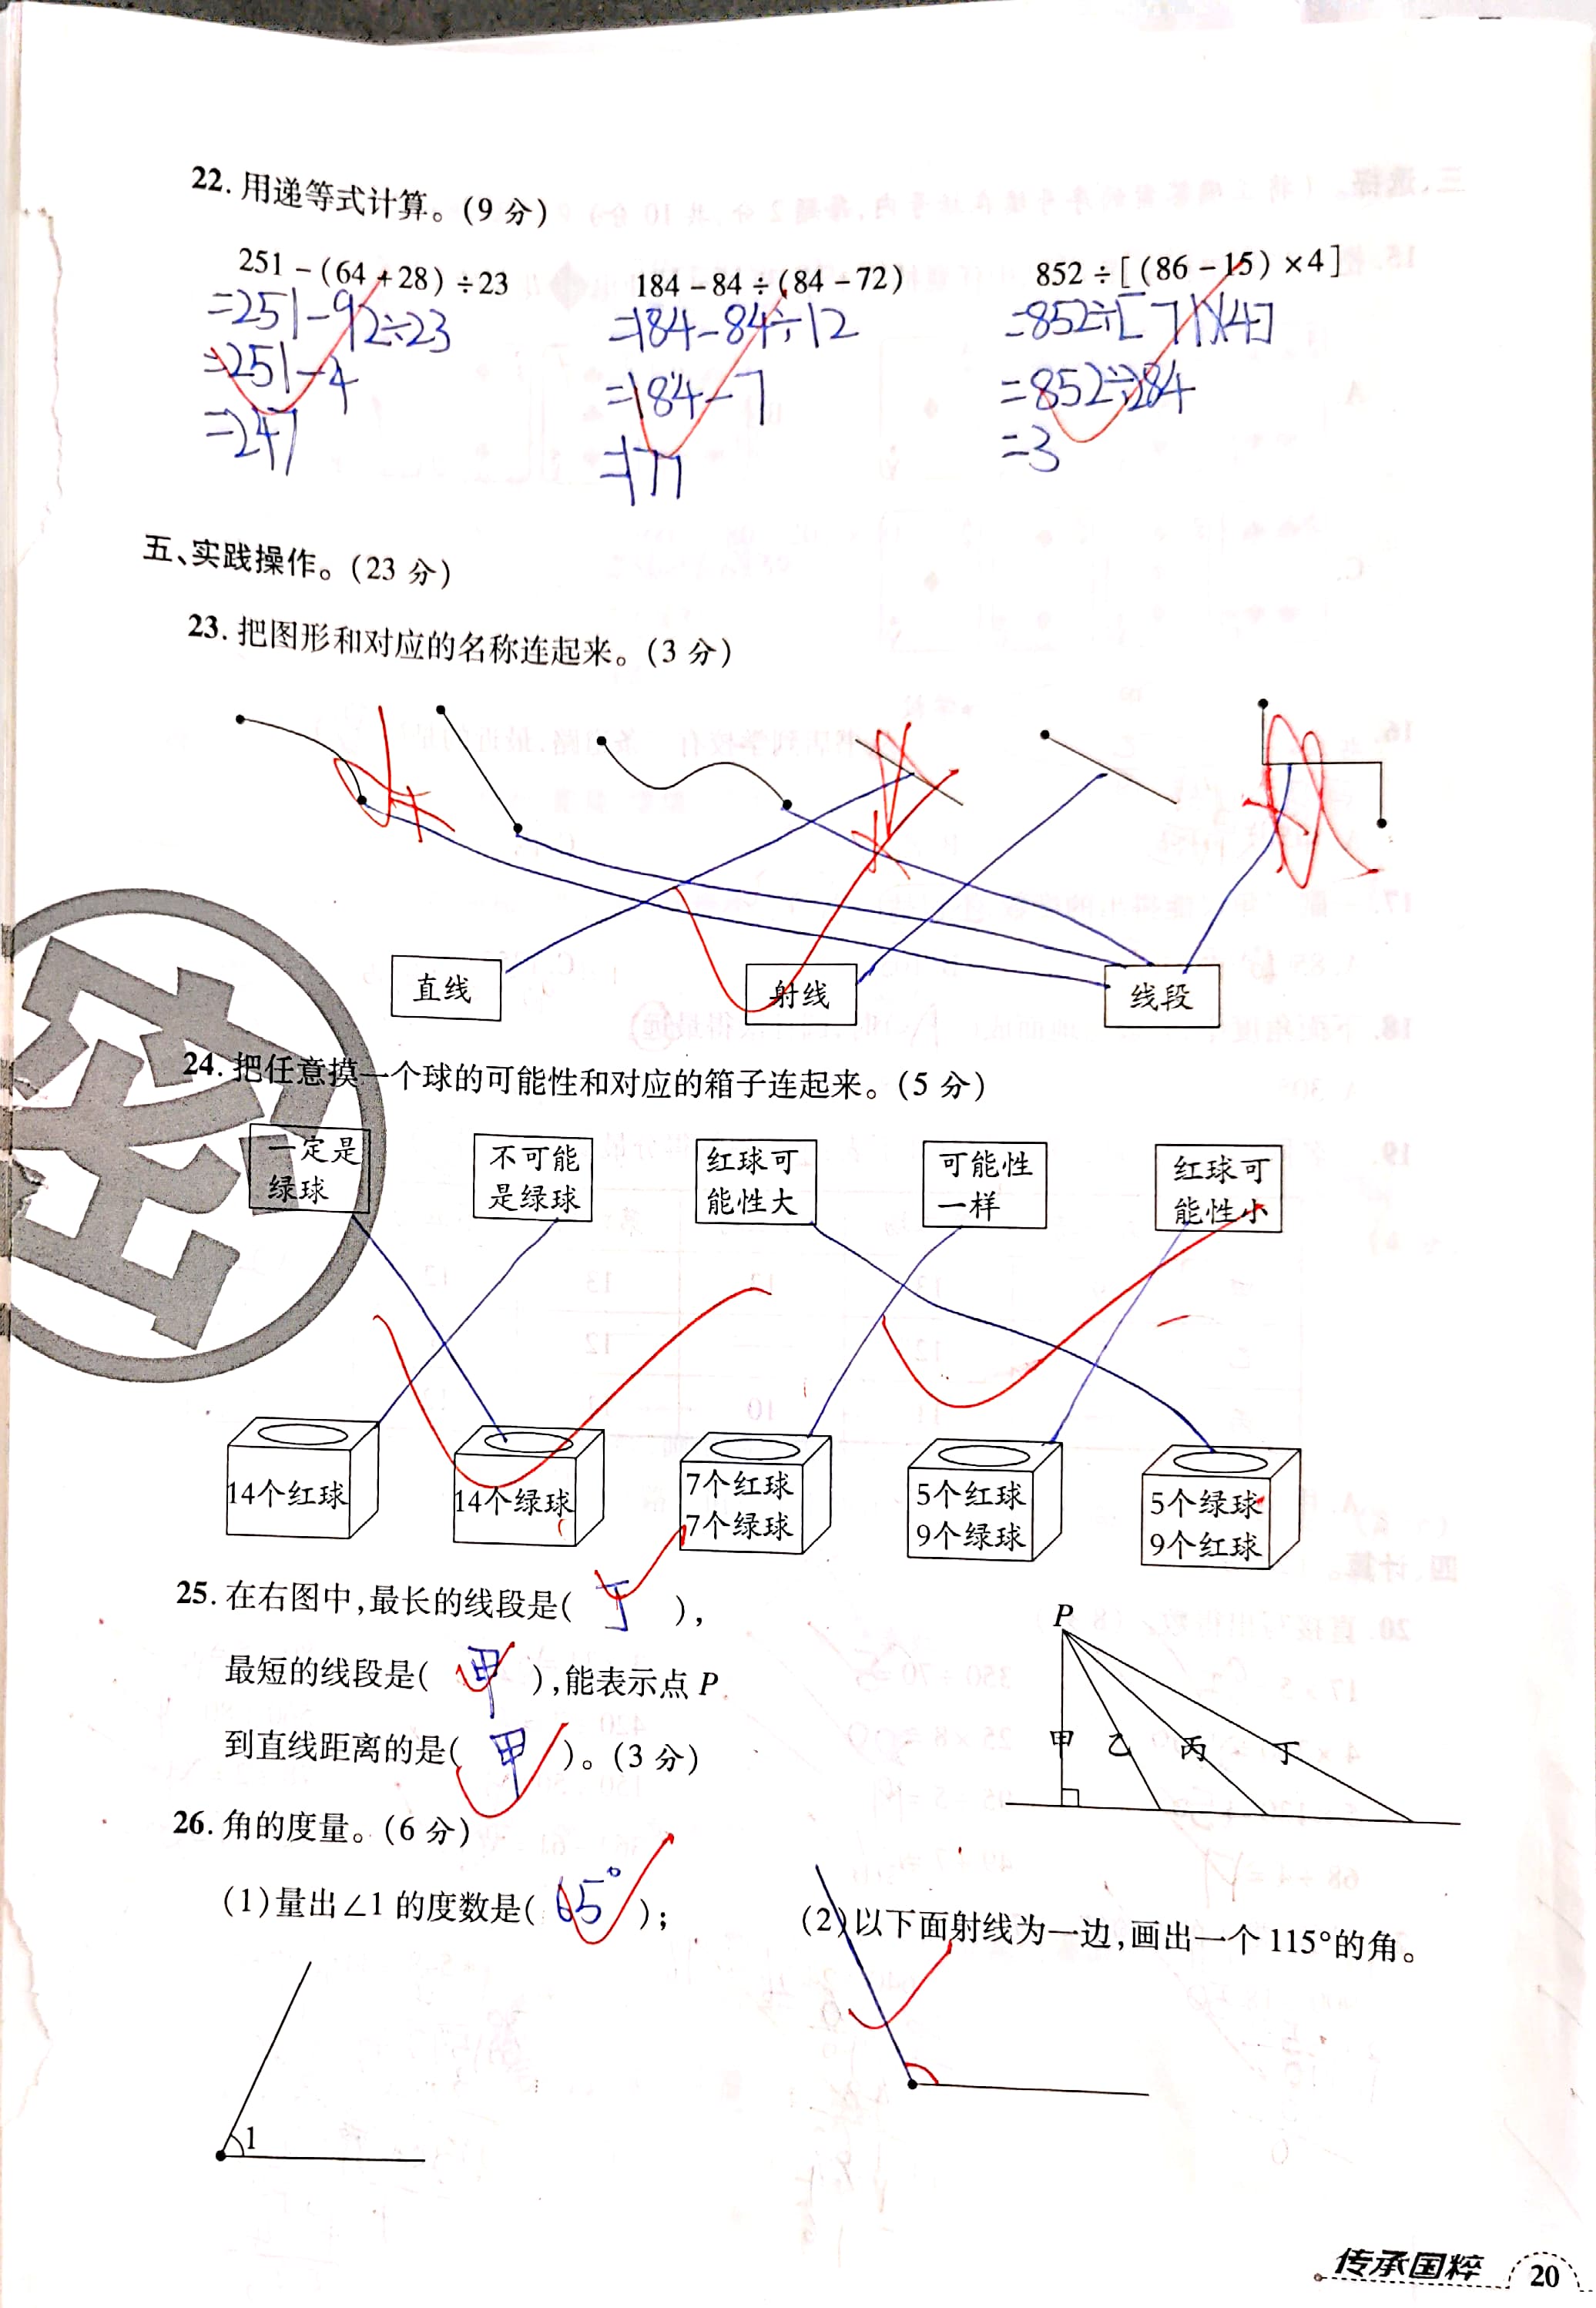 22. 用递等式计算。(9 分)
251 - (64 + 28) ÷ 23
184 - 84 ÷ (84 - 72)
852 ÷ [ (86 - 15) × 4]
=251-92÷23
=184-84÷12
=852÷[71×4]
=251-4
=184-7
=852÷284
=247
=177
=3
五、实践操作。(23 分)
23. 把图形和对应的名称连起来。(3 分)
直线
射线
线段
24. 把任意摸一个球的可能性和对应的箱子连起来。(5 分)
一定是
绿球
不可能
是绿球
红球可
能性大
可能性
一样
红球可
能性小
14个红球
14个绿球
7个红球
7个绿球
5个红球
9个绿球
5个绿球
9个红球
密
25. 在右图中,最长的线段是( 丁 ),
最短的线段是( 甲 ),能表示点 P
到直线距离的是( 甲 )。(3 分)
P
甲 乙 丙 丁
26. 角的度量。(6 分)
(1)量出∠1 的度数是( 65° );
(2)以下面射线为一边,画出一个 115°的角。
1
传承国粹 20